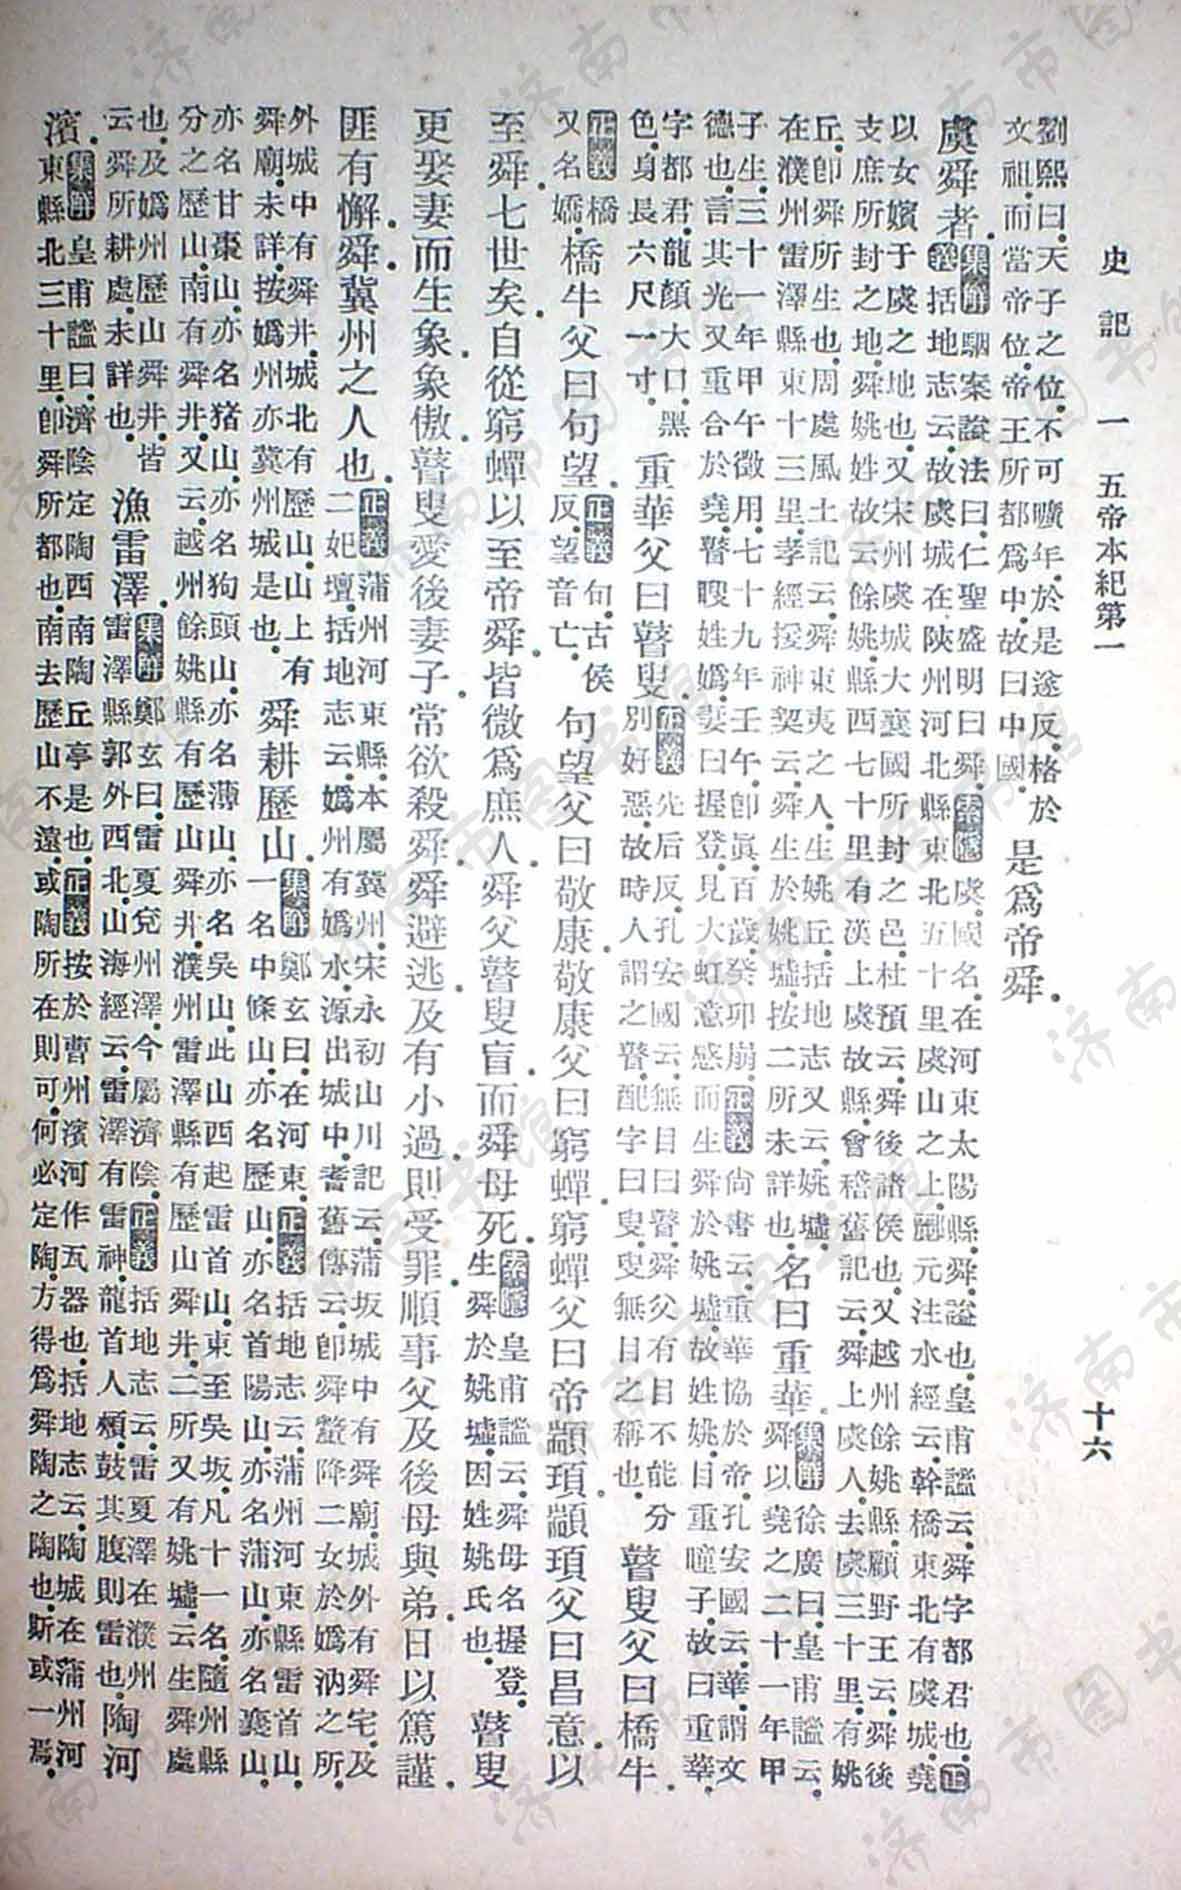 史記 一 五帝本紀第一 十六
劉熙曰。天子之位。不可曠年。於是遂反。格於
文祖。而當帝位。帝王所都爲中。故曰中國。
是爲帝舜。
虞舜者。
集解駰案。諡法曰。仁聖盛明曰舜。索隱虞。國名。在河東太陽縣。舜。諡也。皇甫謐云。舜字都君也。正
義括地志云。故虞城在陝州河北縣東北五十里虞山之上。酈元注水經云。幹橋東北有虞城。堯
以女嬪于虞之地也。又宋州虞城大襄國所封之邑。杜預云。舜後諸侯也。又越州餘姚縣。顧野王云。舜後
支庶所封之地。舜姚姓。故云餘姚。縣西七十里有漢上虞故縣。會稽舊記云。舜上虞人。去虞三十里有姚
丘。卽舜所生也。周處風土記云。舜東夷之人。生姚丘。括地志又云。姚墟
在濮州雷澤縣東十三里。孝經援神契云。舜生於姚墟。按二所未詳也。
名曰重華。
集解徐廣曰。皇甫謐云。
舜以堯之二十一年甲
子生。三十一年甲午徵用。七十九年壬午卽眞。百歲癸卯崩。正義尙書云。重華協於帝。孔安國云。華。謂文
德也。言其光又重合於堯。瞽瞍姓嬀。妻曰握登。見大虹意感而生舜於姚墟。故姓姚。目重瞳子。故曰重華。
字都君。龍顏大口。黑
色。身長六尺一寸。
重華父曰瞽叟。
正義先后反。孔安國云。無目曰瞽。舜父有目不能分
別好惡。故時人謂之瞽。配字曰叟。叟無目之稱也。
瞽叟父曰橋牛。
正義橋
又名嬌。
橋牛父曰句望。
正義句。古侯
反。望音亡。
句望父曰敬康。敬康父曰窮蟬。窮蟬父曰帝顓頊。顓頊父曰昌意。以
至舜。七世矣。自從窮蟬以至帝舜。皆微爲庶人。舜父瞽叟盲。而舜母死。
索隱皇甫謐云。舜母名握登。
生舜於姚墟。因姓姚氏也。
瞽叟
更娶妻而生象。象傲。瞽叟愛後妻子。常欲殺舜。舜避逃。及有小過。則受罪。順事父及後母與弟。日以篤謹。
匪有懈。舜。冀州之人也。
正義蒲州河東縣。本屬冀州。宋永初山川記云。蒲坂城中有舜廟。城外有舜宅及
二妃壇。括地志云。嬀州有嬀水。源出城中。耆舊傳云。卽舜釐降二女於嬀汭之所。
外城中有舜井。城北有歷山。山上有
舜廟。未詳。按嬀州亦冀州城是也。
舜耕歷山。
集解鄭玄曰。在河東。正義括地志云。蒲州河東縣雷首山。
一名中條山。亦名歷山。亦名首陽山。亦名蒲山。亦名襄山。
亦名甘棗山。亦名猪山。亦名狗頭山。亦名薄山。亦名吳山。此山西起雷首山。東至吳坂。凡十一名。隨州縣
分之。歷山南有舜井。又云。越州餘姚縣有歷山舜井。濮州雷澤縣有歷山舜井。二所又有姚墟。云生舜處
也。及嬀州歷山舜井。皆
云舜所耕處。未詳也。
漁雷澤。
集解鄭玄曰。雷夏。兗州澤。今屬濟陰。正義括地志云。雷夏澤在濮州
雷澤縣郭外西北。山海經云。雷澤有雷神。龍首人頰。鼓其腹則雷也。
陶河
濱。
集解皇甫謐曰。濟陰定陶西南陶丘亭是也。正義按。於曹州濱河作瓦器也。括地志云。陶城在蒲州河
東縣北三十里。卽舜所都也。南去歷山不遠。或陶所在則可。何必定陶方得爲舜陶之陶也。斯或一焉。
济南市图书馆